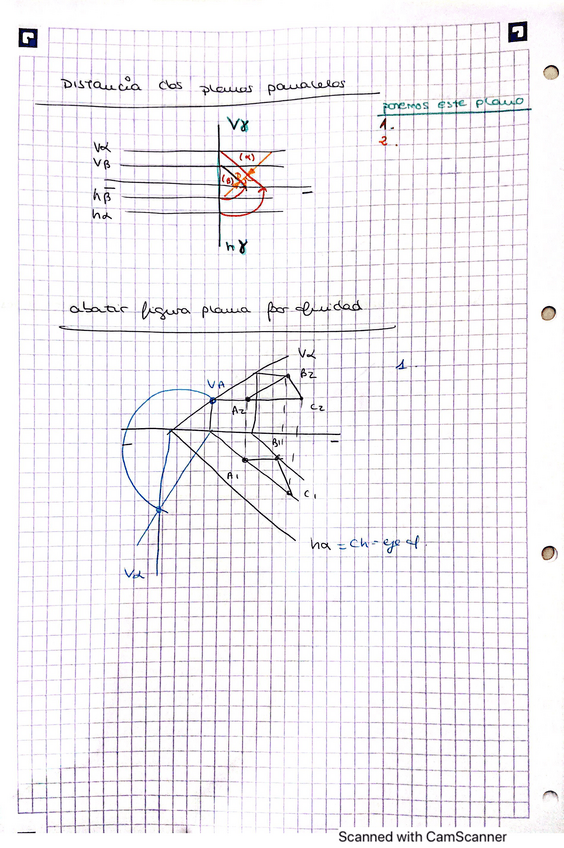 Distancia dos planos paralelos
ponemos este plano
1.
2.
Vγ
Vα
Vβ
(α)
(β)
D
hβ
hα
hγ
abatir figura plana por afinidad
1
Vα
VA
B2
A2
C2
B1
A1
C1
hα = Ch - eje af.
Vα
Scanned with CamScanner